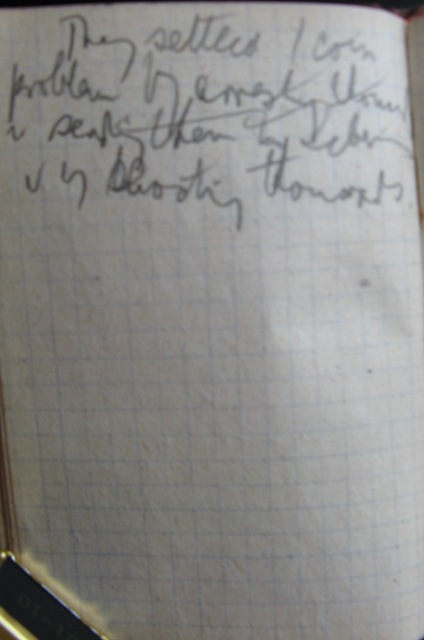 They settled / coin
problem by arresting thous
& sending them to Siberia
& by shooting thousands.